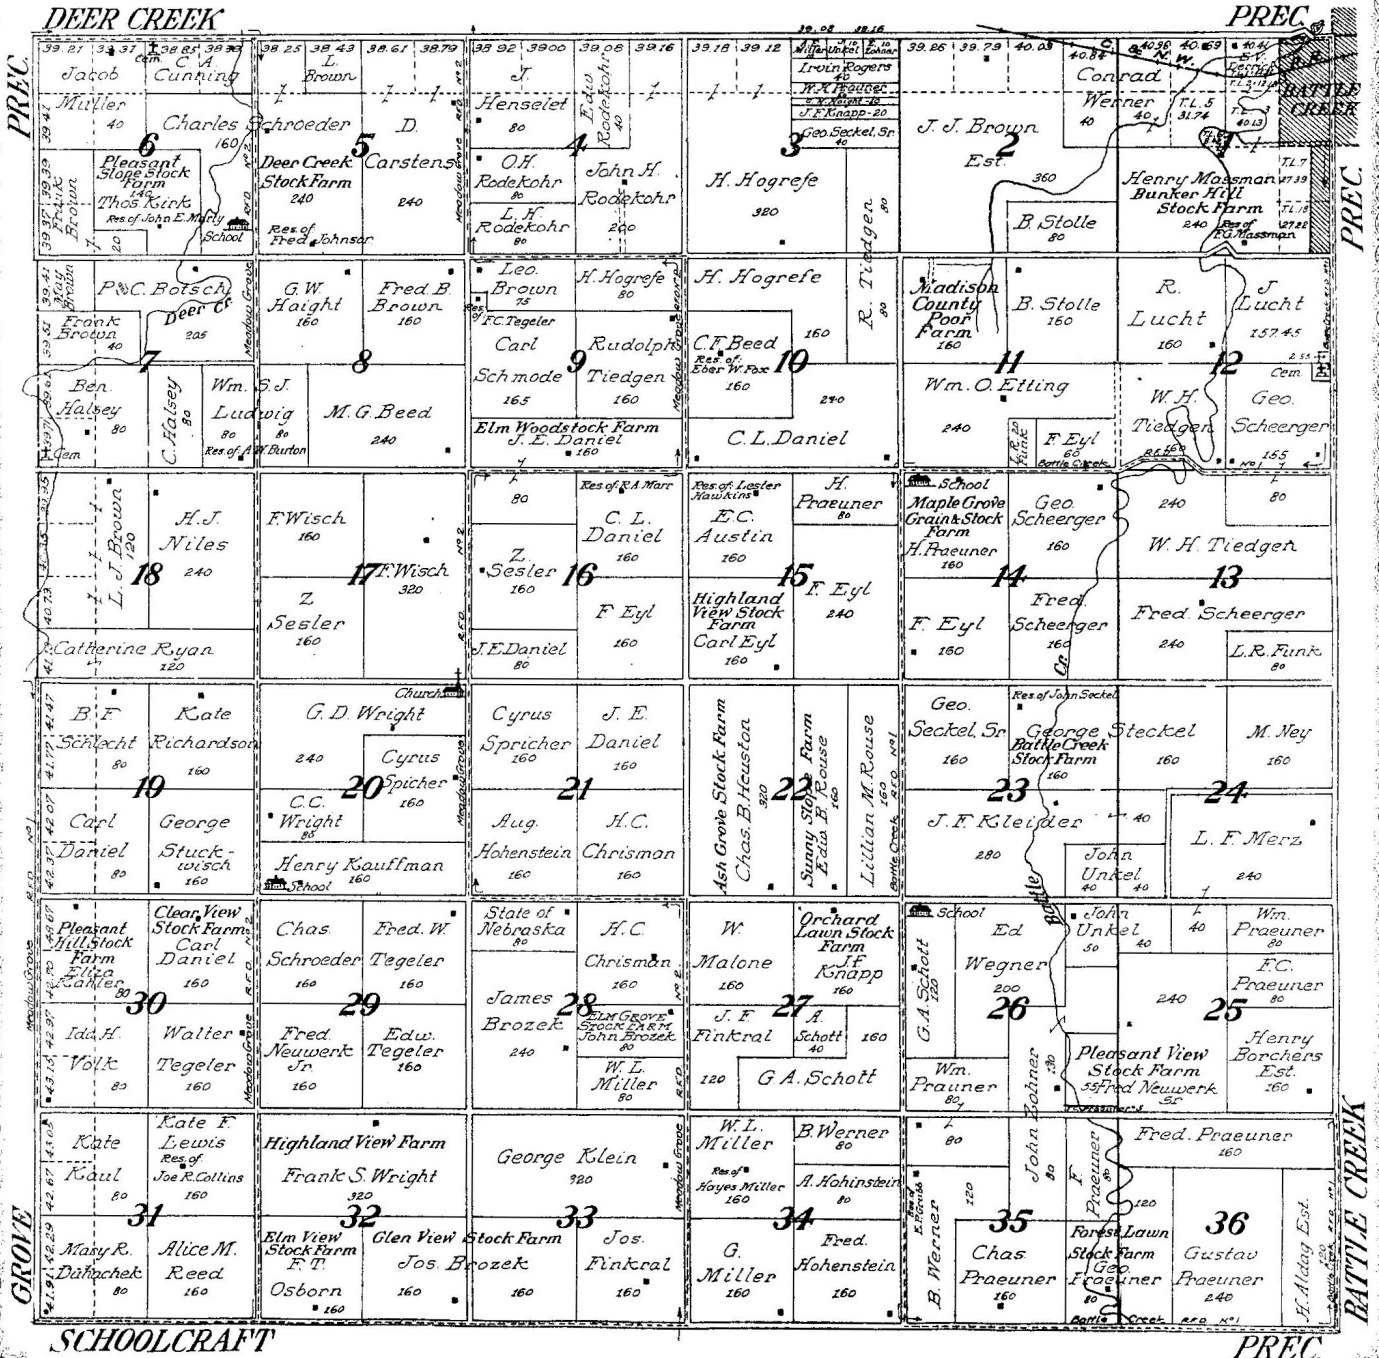 DEER CREEK
PREC.
PREC.
39.08 39.16
39.21 39.31 38.85 38.93 38.25 38.43 38.61 38.79 38.92 3900 39.08 39.16 39.18 39.12 39.26 39.79 40.03 40.84 40.96 40.69 40.41
C. & N. W. R. R.
BATTLE CREEK
Jacob Muller 40
Cem.
C. A. Cunning
Charles Schroeder 160
6
Pleasant Slope Stock Farm 140
Thos Kirk
Res. of John E. Marly
Frank Brown
20
School
L. Brown
5
D. Carstens 240
Deer Creek Stock Farm 240
Res. of Fred Johnson
J. Henselet 80
Edw Rodekohr 40
4
O.H. Rodekohr 80
L. H. Rodekohr 80
John H. Rodekohr 200
Irvin Rogers 40
W.H. Prauner
J.F. Knapp-20
Geo. Seckel, Sr. 40
3
H. Hogrefe 320
R. Tiedgen 80
J. J. Brown Est. 360
2
B. Stolle 80
Conrad Werner 40 40
T.L. 5 31.74
T.L. 3 40.13
1
Henry Massman
Bunker Hill Stock Farm 240
Res of F.G. Massman
T.L. 7 27.39
T.L. 18 27.22
PREC.
May Brown
P & C. Botsch 205
Deer Cr.
Frank Brown 40
7
Ben. Halsey 80
Cem
C. Halsey 80
Wm. Ludwig 80
S. J. 80
Res. of A W. Burton
Meadow Grove
G.W. Haight 160
Fred. B. Brown 160
8
M. G. Beed 240
Leo. Brown 75
Res. of F.C. Tegeler
H. Hogrefe 80
Carl Schmode 165
9
Rudolph Tiedgen 160
Elm Woodstock Farm
J. E. Daniel 160
H. Hogrefe 160
R. Tiedgen 80
C. F. Beed
Res. of Eber W. Fox 160
10
240
C. L. Daniel
Madison County Poor Farm 160
B. Stolle 160
11
Wm. O. Etting 240
L. R. Funk 20
F. Eyl 60
Battle Creek
R. Lucht 160
J Lucht 157.45
12
2.55
Cem
W. H. Tiedgen
Geo. Scheerger 155
L. J. Brown 120
H. J. Niles 240
18
Catherine Ryan 120
F. Wisch 160
17
F. Wisch 320
Z Sesler 160
80
Z. Sesler 160
Res. of R.A. Marr
C. L. Daniel 160
16
F Eyl 160
J. E. Daniel 80
Res. of Lester Hawkins
E. C. Austin 160
H. Praeuner 80
15
Highland View Stock Farm
Carl Eyl 160
F. Eyl 240
School
Maple Grove Grain & Stock Farm
H. Praeuner 160
Geo. Scheerger 160
14
F. Eyl 160
Fred. Scheerger 160
Cr.
240
80
W. H. Tiedgen
13
Fred. Scheerger 240
L. R. Funk 80
B. F Schlecht 80
Kate Richardson 160
19
Carl Daniel 80
George Stuckwisch 160
Church
G. D. Wright 240
Cyrus Spicher 160
20
C. C. Wright 80
Henry Kauffman 160
School
Cyrus Spricher 160
J. E. Daniel 160
21
Aug. Hohenstein 160
H.C. Chrisman 160
Ash Grove Stock Farm
Chas. B. Heuston 320
22
Sunny Slope Farm
Edw. B. Rouse 160
Lillian M. Rouse 160
Battle Creek R.F.D. No 1
Geo. Seckel, Sr 160
Res. of John Seckel
George Steckel 160
Battle Creek Stock Farm 160
23
J. F. Kleider 280
40
John Unkel 40 40
Battle
M. Ney 160
24
L. F. Merz 240
Pleasant Hill Stock Farm
Eliza Kahler 80
Clear View Stock Farm
Carl Daniel 160
30
Ida H. Volk 80
Walter Tegeler 160
Chas. Schroeder 160
Fred. W. Tegeler 160
29
Fred. Neuwerk Jr. 160
Edw. Tegeler 160
State of Nebraska 80
H.C. Chrisman 160
28
James Brozek 240
ELM GROVE STOCK FARM
John Brozek 80
W. L. Miller 80
W. Malone 160
Orchard Lawn Stock Farm
J.F. Knapp 160
27
J. F. Finkral 120
A. Schott 40
160
G. A. Schott
School
G.A. Schott 120
Ed Wegner 200
26
Wm. Prauner 80
John Zohner 130
John Unkel 50 40
40
Wm. Praeuner 80
F.C. Praeuner 80
240
25
Pleasant View Stock Farm
55 Fred Neuwerk Sr
Henry Borchers Est. 160
Kate Kaul 80
Kate F. Lewis
Res. of Joe R. Collins 160
31
Mary R. Duhachek 80
Alice M. Reed 160
Highland View Farm
Frank S. Wright 320
32
Elm View Stock Farm
F. T. Osborn 160
Glen View Stock Farm
Jos. Brozek 160 160
George Klein 320
33
Jos. Finkral 160
W. L. Miller
Res. of Hayes Miller 160
B. Werner 80
A. Hohinstein 80
34
G. Miller 160
Fred. Hohenstein 160
80
Res of E.P. Grubb
B. Werner 120
John Zohner 80
F Praeuner 80
35
Chas Praeuner 160
Forest Lawn Stock Farm
Geo. Praeuner 80
Fred. Praeuner 160
120
36
Gustav Praeuner 240
H. Aldag Est. 120
Battle Creek R.F.D. No 1
GROVE
BATTLE CREEK
SCHOOLCRAFT
PREC.